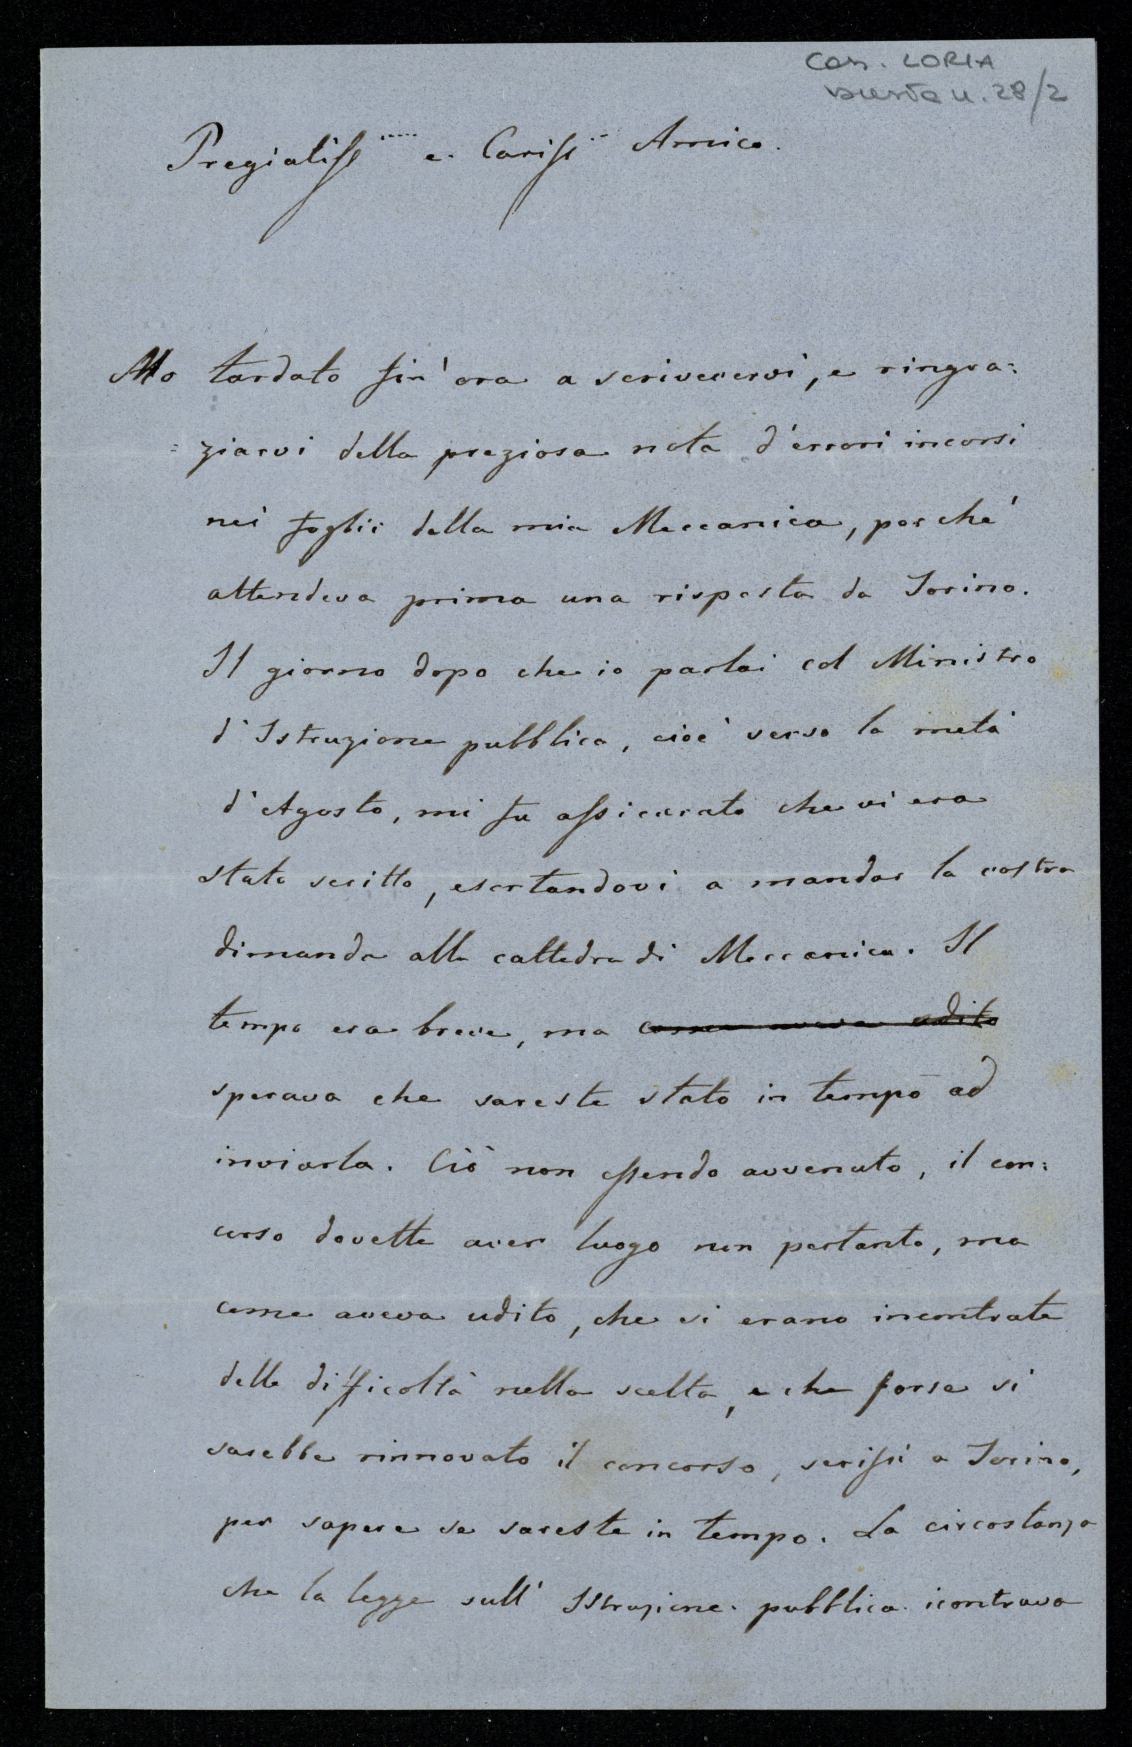 Cas. LORIA
busta n. 28/2
Pregiatiss.... e Cariss... Amico.
Ho tardato fin'ora a scrivervi, e ringra=
=ziarvi della preziosa nota d'errori incorsi
nei foglii della mia Meccanica, perchè
attendeva prima una risposta da Torino.
Il giorno dopo che io parlai col Ministro
d'Istruzione pubblica, cioè verso la metà
d'Agosto, mi fu assicurato che vi era
stato scritto, esortandovi a mandar la vostra
dimanda alla cattedra di Meccanica. Il
tempo era breve, ma come aveva udito
sperava che sareste stato in tempo ad
inviarla. Ciò non essendo avvenuto, il con=
corso dovette aver luogo non pertanto, ma
come aveva udito, che si erano incontrate
delle difficoltà nella scelta, e che forse si
sarebbe rinnovato il concorso, scrissi a Torino,
per sapere se sareste in tempo. La circostanza
che la legge sull'Istruzione pubblica icontrava